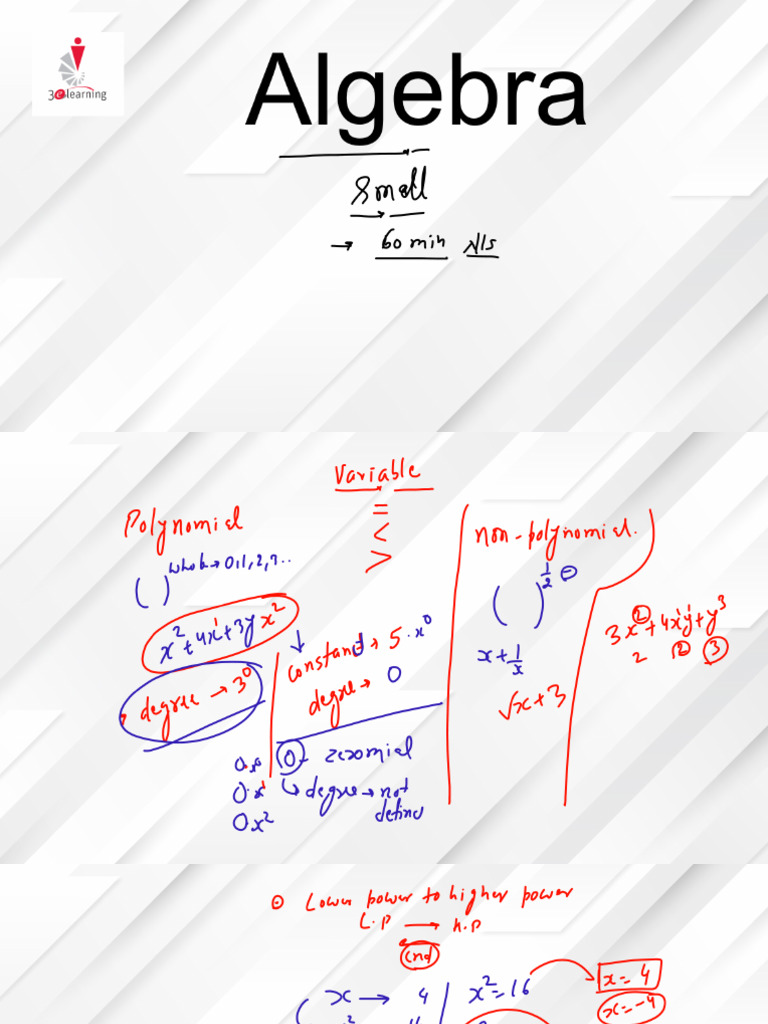 3e learning
Algebra
Small
→ 60 min
Variable
=
<
>
Polynomial
( ) whole → 0,1,2,3..
x² + 4x¹ + 3y x²
degree → 3⁰
constant → 5·x⁰
degree → 0
0·x⁰
0·x¹
0x²
0 - zeromial
↳ degree → not
define
non-polynomial.
( ) 1/2 ⊖
x + 1/x
√x + 3
3x² + 4x¹y¹ + y³
2 2 3
⊙ Lower power to higher power
L.P → H.P
x → 4
x² = 16
x = 4
x = -4